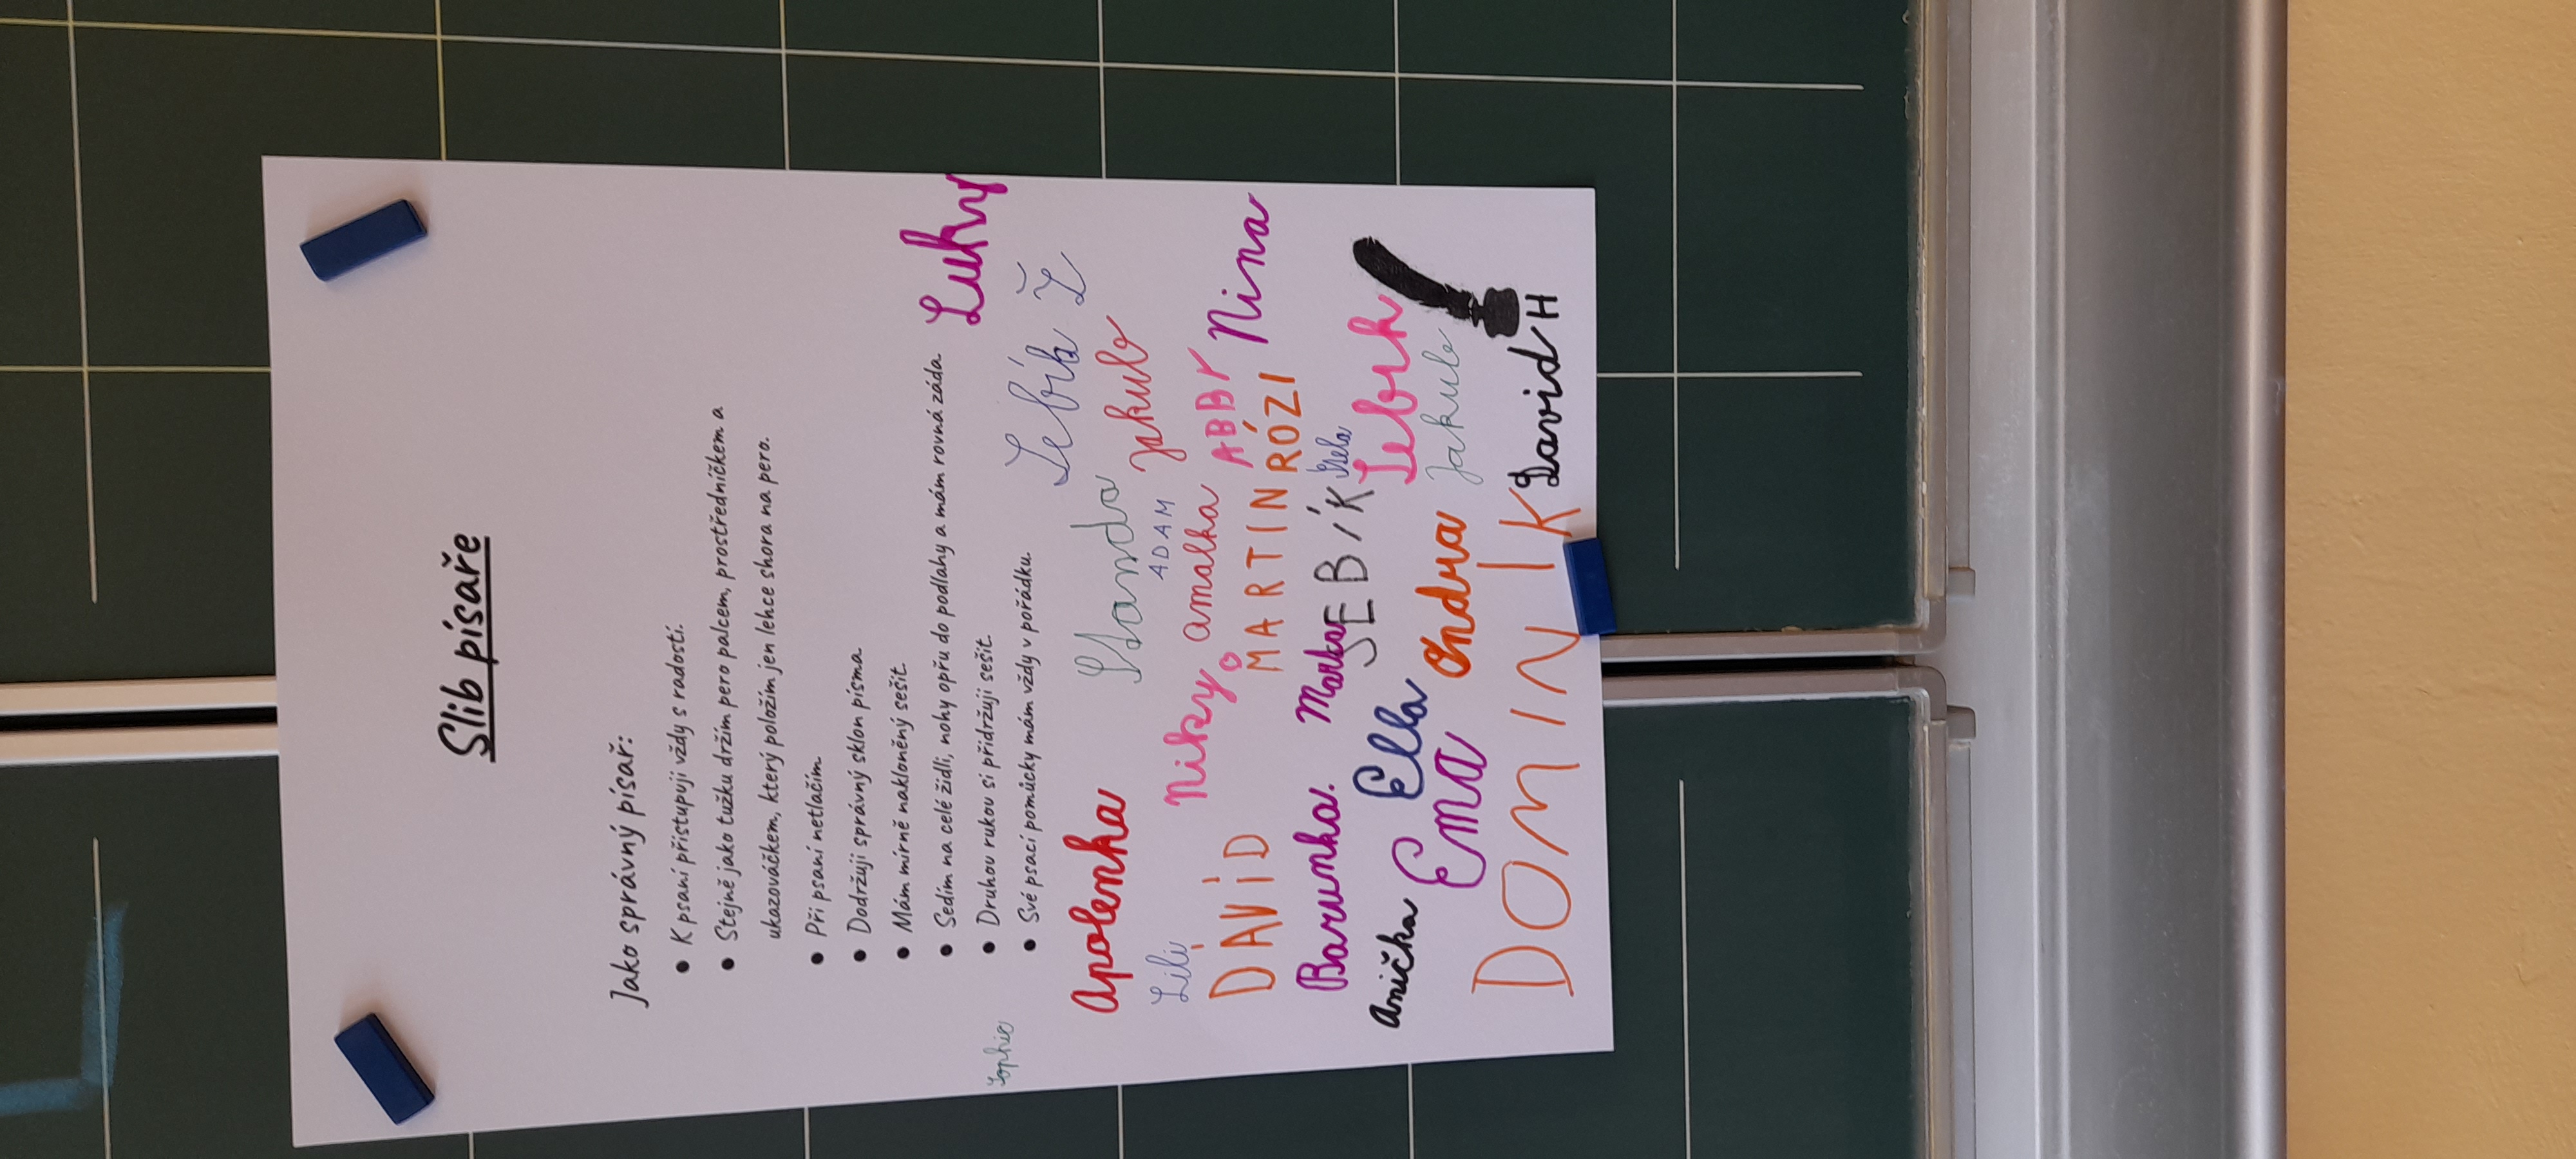 Slib písaře
Jako správný písař:
• K psaní přistupuji vždy s radostí.
• Stejně jako tužku držím pero palcem, prostředníčkem a
ukazováčkem, který položím jen lehce shora na pero.
• Při psaní netlačím
• Dodržuji správný sklon písma
• Mám mírně nakloněný sešit.
• Sedím na celé židli, nohy opřu do podlahy a mám rovná záda.
• Druhou rukou si přidržuji sešit.
• Své psací pomůcky mám vždy v pořádku.
Luky
Sophie
Sebík Ž
Apolenka Standa Jakub
Lili ADAM
Niky amalka ABBY Nina
DAVID MARTIN RÓZI
Barunka.
SEBÍK
Anička Ella Ondra Jakub
Ema
DOMINIK David H